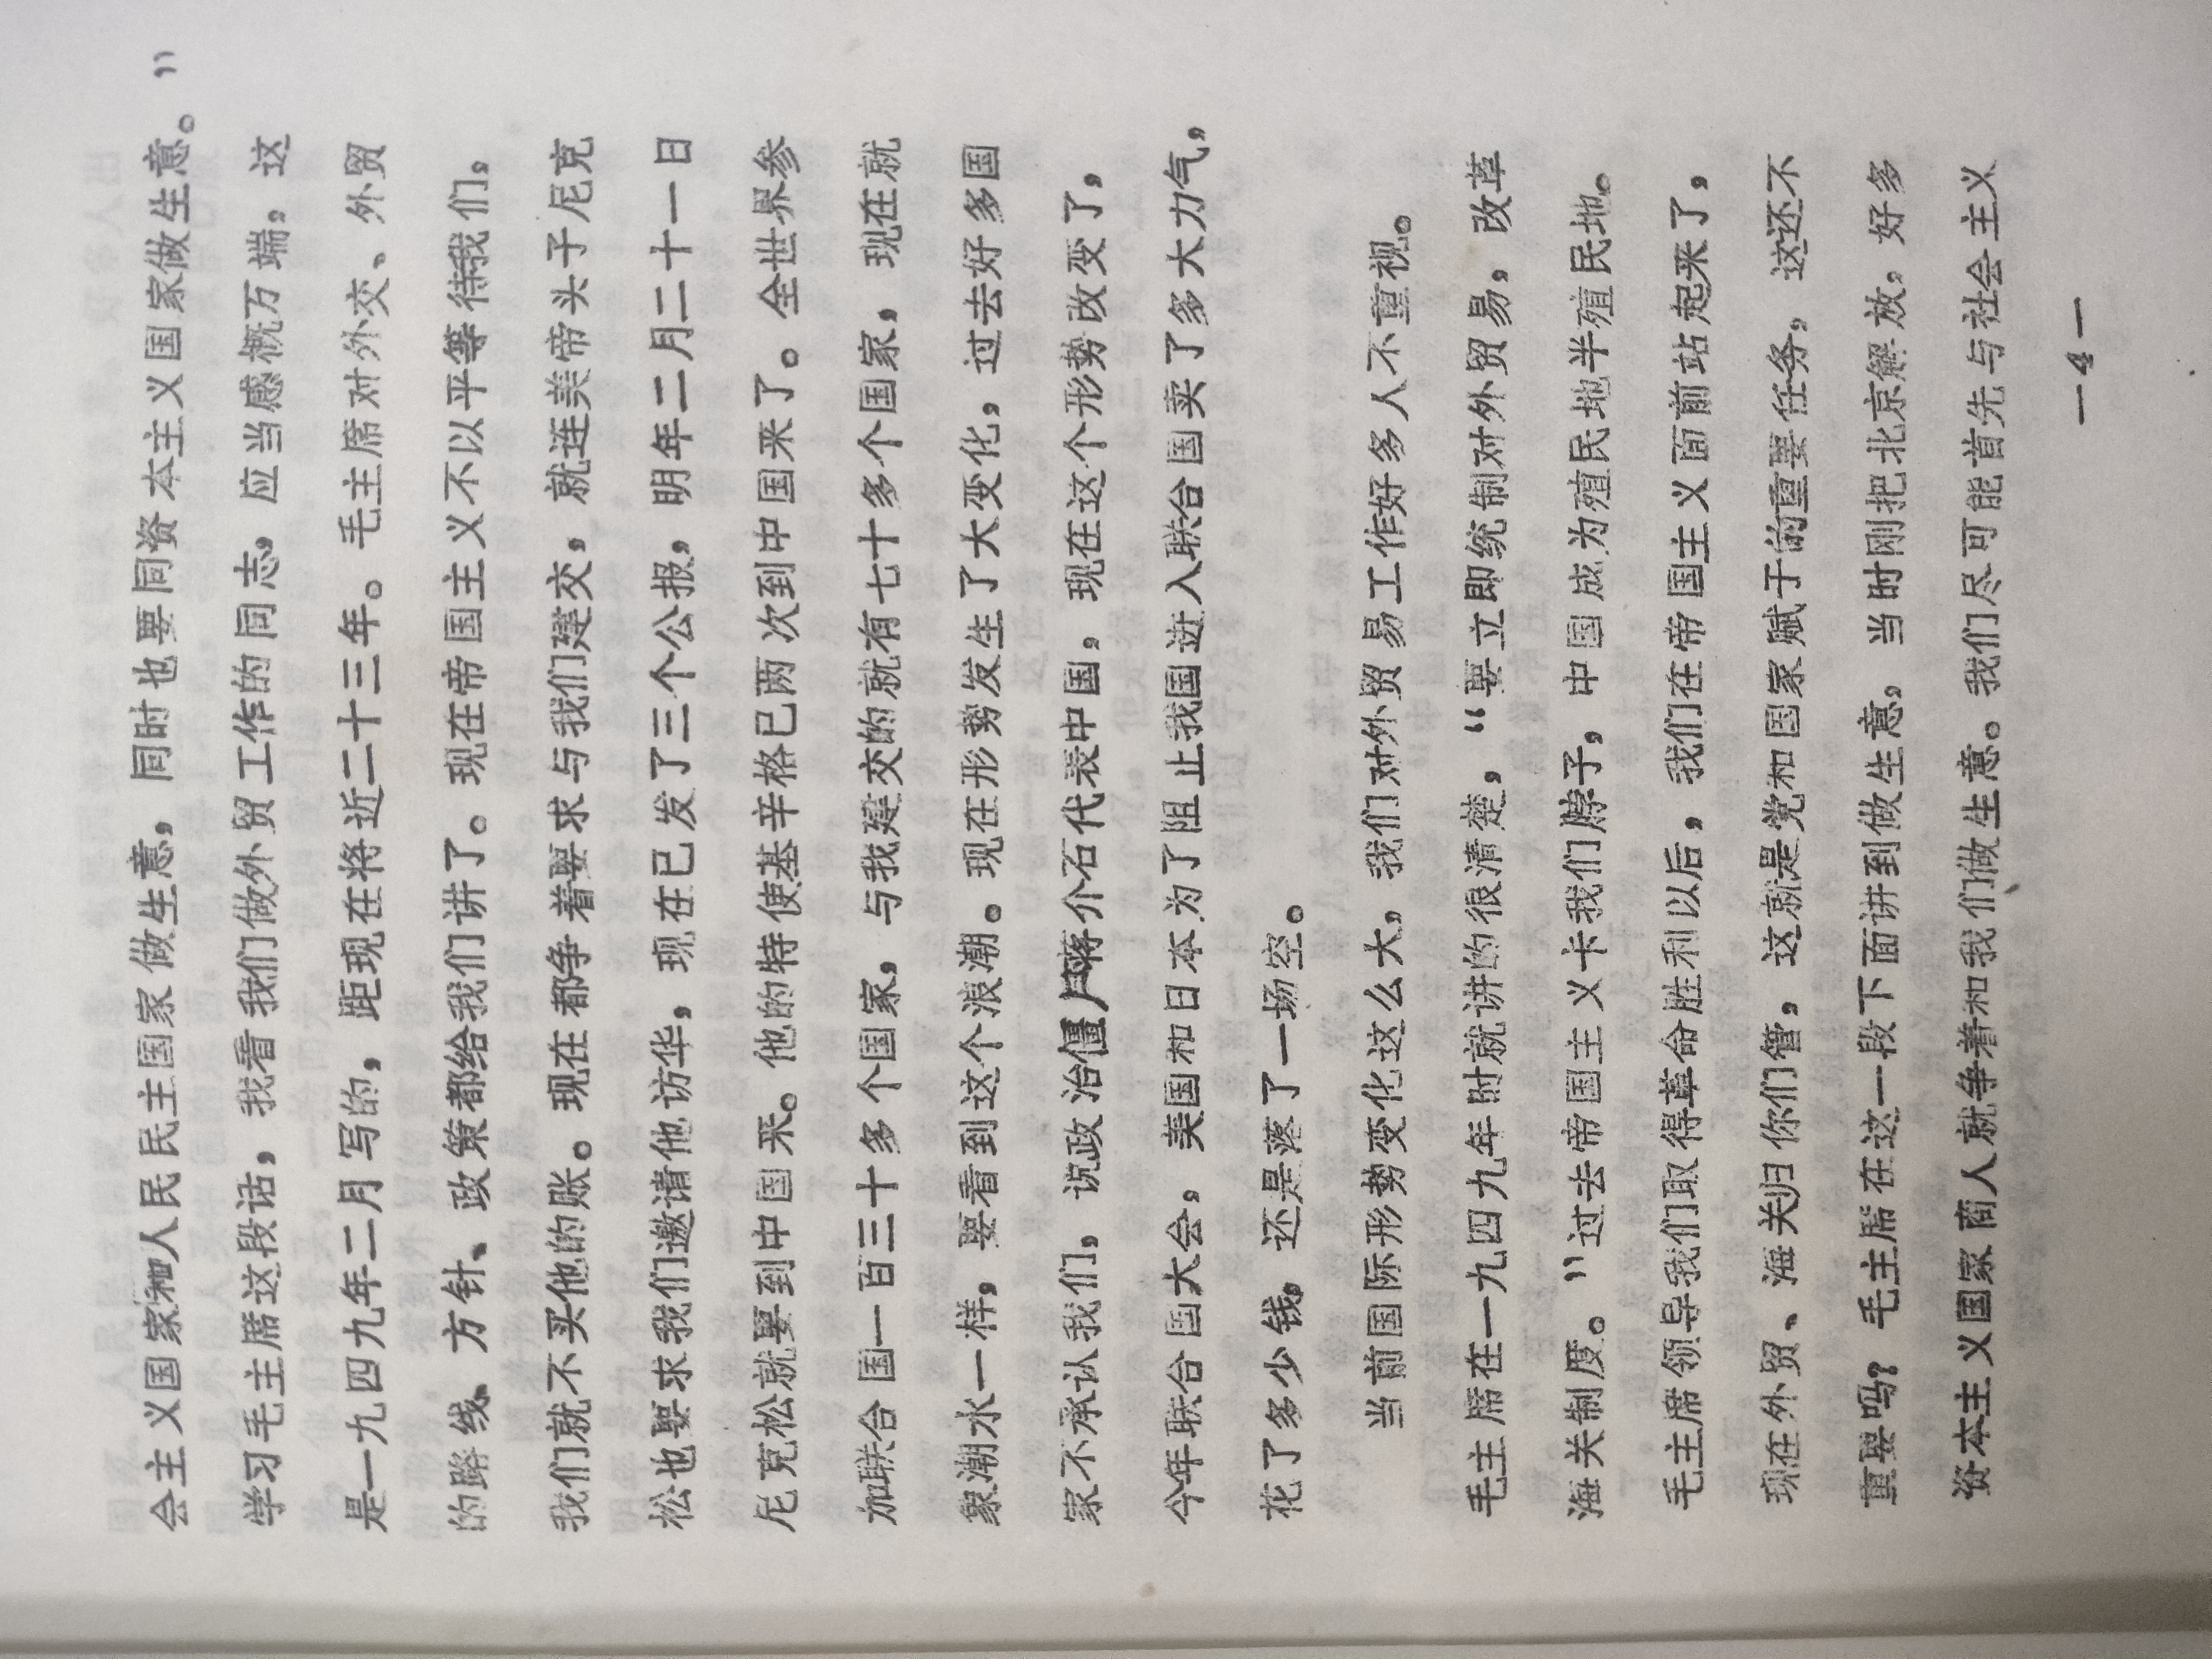 会主义国家和人民民主国家做生意，同时也要同资本主义国家做生意。”
学习毛主席这段话，我看我们做外贸工作的同志，应当感概万端，这
是一九四九年二月写的，距现在将近二十三年。毛主席对外交、外贸
的路线、方针、政策都给我们讲了。现在帝国主义不以平等待我们，
我们就不买他的账。现在都争着要求与我们建交，就连美帝头子尼克
松也要求我们邀请他访华，现在已发了三个公报，明年二月二十一日
尼克松就要到中国来。他的特使基辛格已两次到中国来了。全世界参
加联合国一百三十多个国家，与我建交的就有七十多个国家，现在就
象潮水一样，要看到这个浪潮。现在形势发生了大变化，过去好多国
家不承认我们，说政治僵尸蒋介石代表中国，现在这个形势改变了，
今年联合国大会，美国和日本为了阻止我国进入联合国卖了多大力气，
花了多少钱，还是落了一场空。
当前国际形势变化这么大，我们对外贸易工作好多人不重视。
毛主席在一九四九年时就讲的很清楚，“要立即统制对外贸易，改革
海关制度。”过去帝国主义卡我们脖子，中国成为殖民地半殖民地。
毛主席领导我们取得革命胜利以后，我们在帝国主义面前站起来了，
现在外贸、海关归你们管，这就是党和国家赋于的重要任务，这还不
重要吗？毛主席在这一段下面讲到做生意，当时刚把北京解放，好多
资本主义国家商人就争着和我们做生意。我们尽可能首先与社会主义
—4—